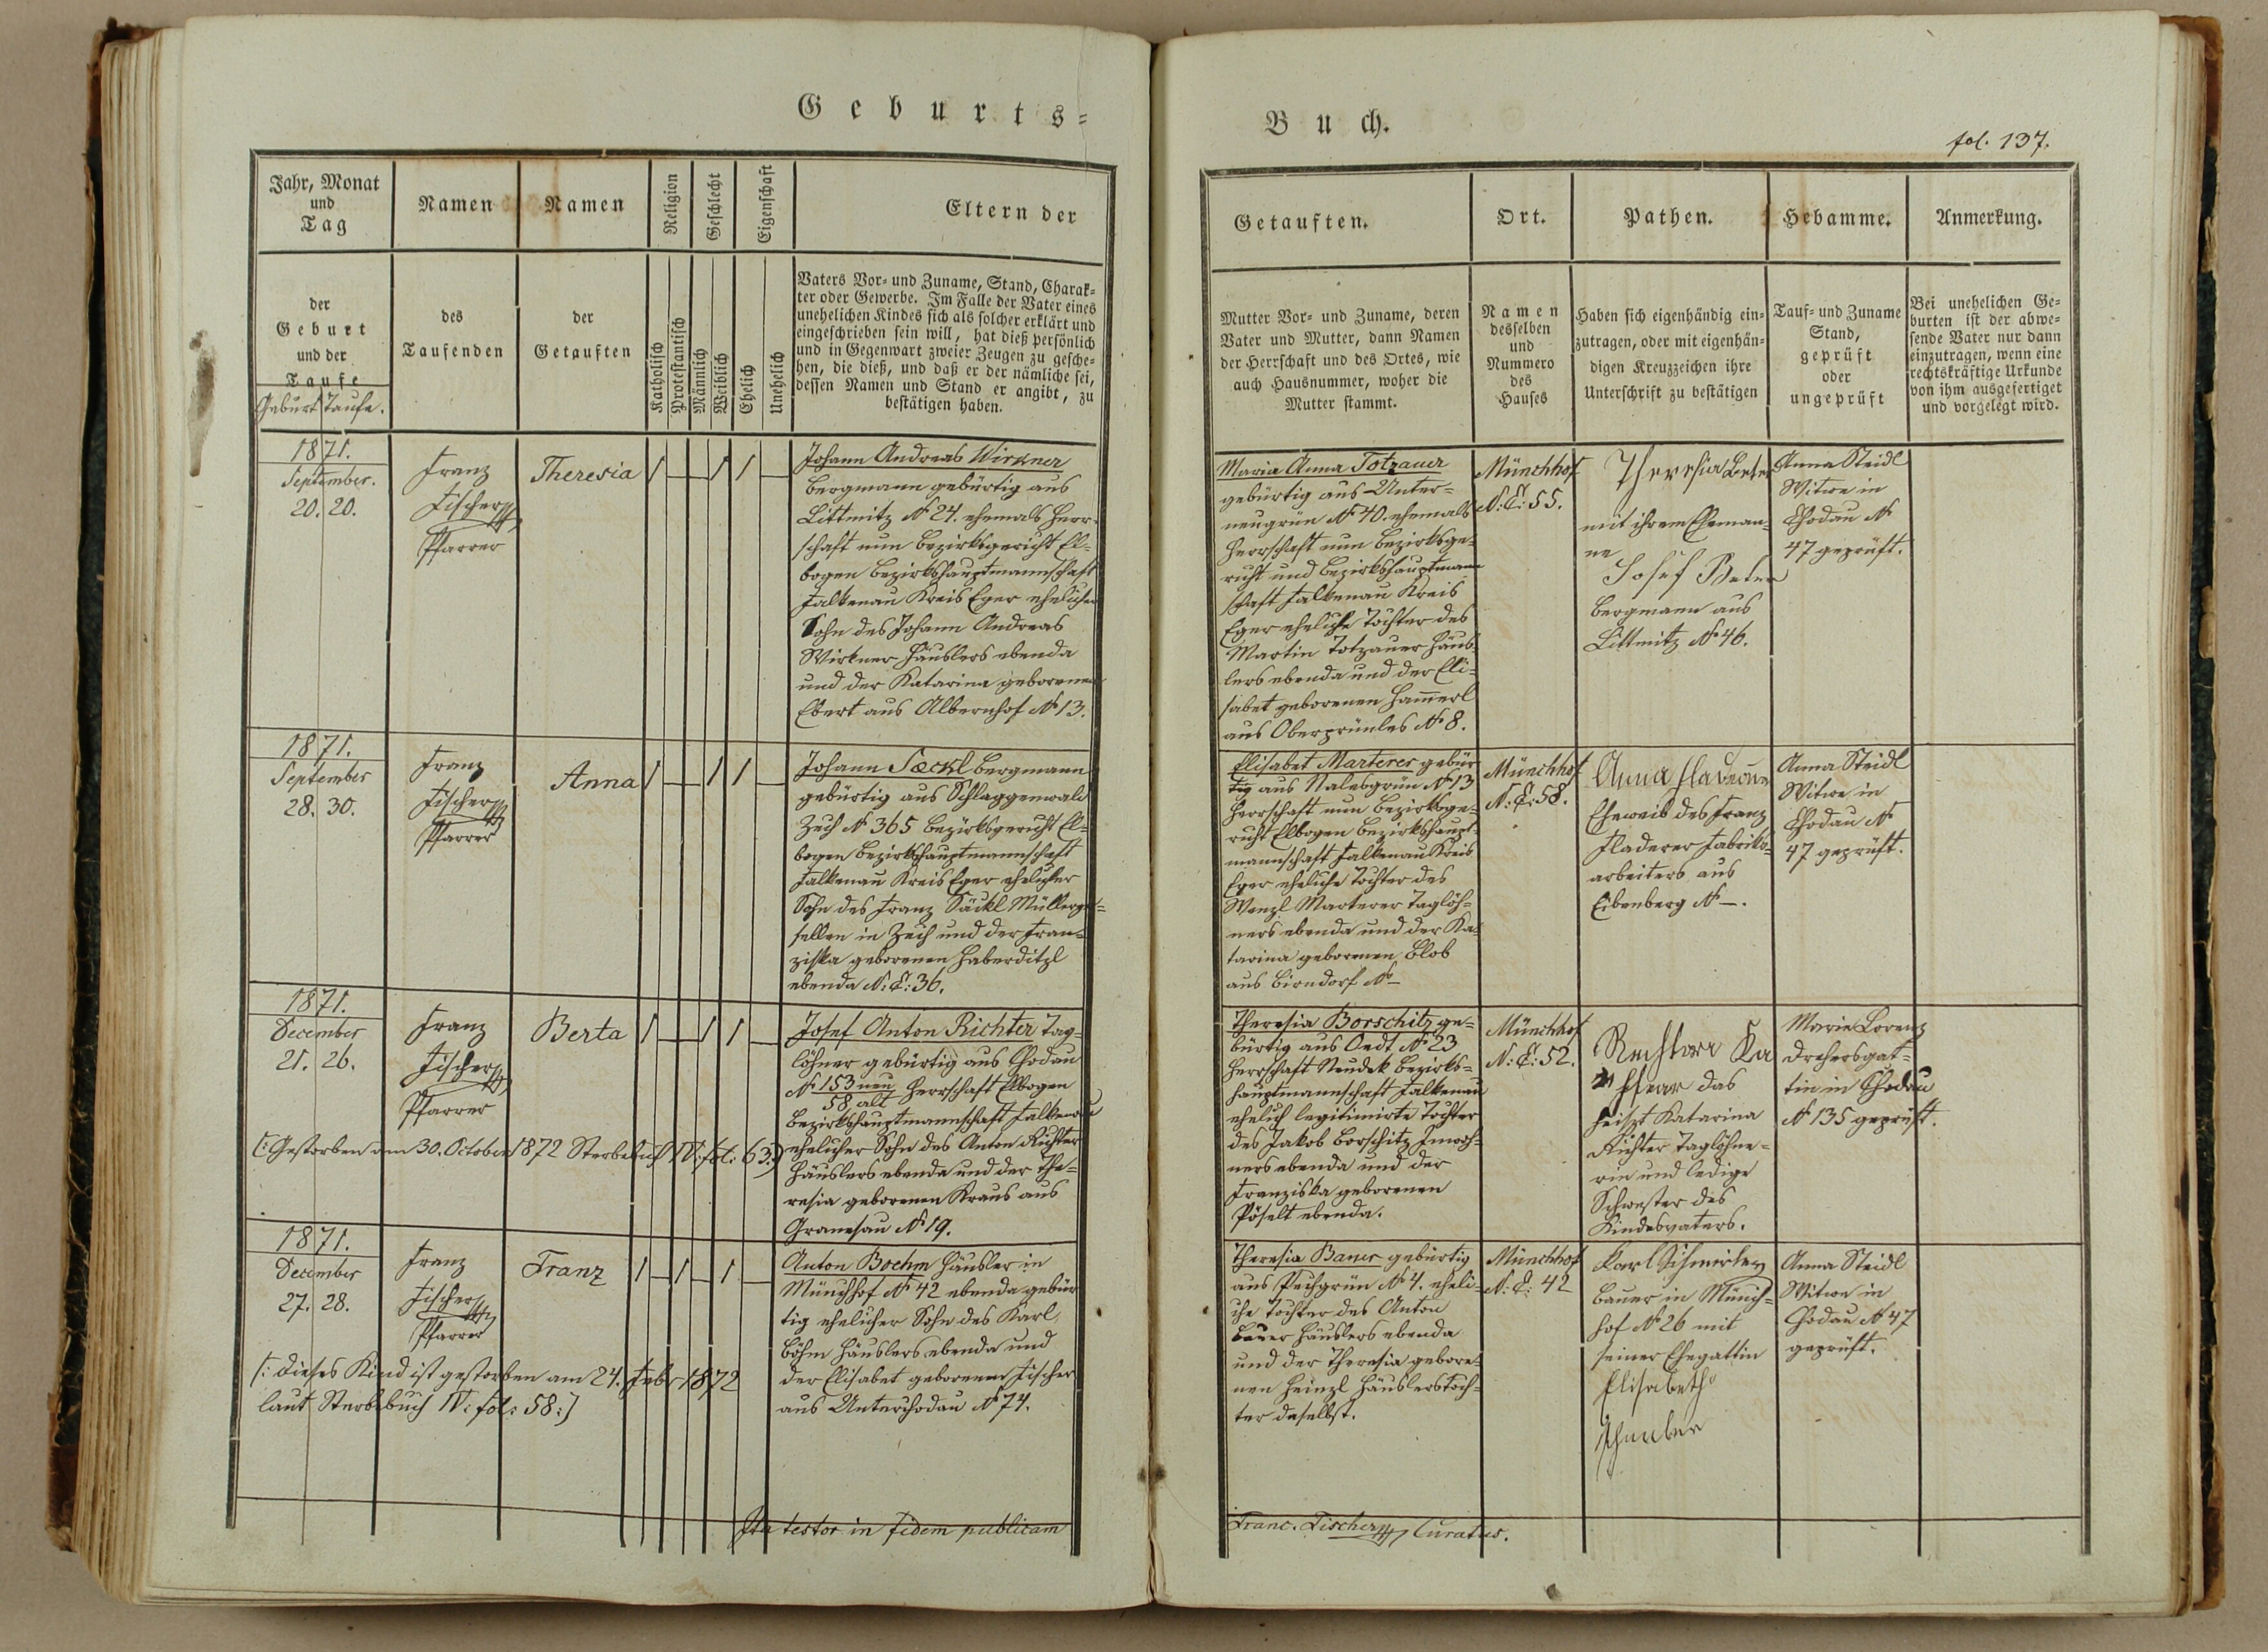 Geburts=
Jahr, Monat
und
Tag
Namen
Namen
Religion
Geschlecht
Eigenschaft
Eltern der
der
Geburt
und der
Taufe
Geburt Taufe.
des
Taufenden
der
Getauften
Katholisch
Protestantisch
Männlich
Weiblich
Ehelich
Unehelich
Vaters Vor- und Zuname, Stand, Charak-
ter oder Gewerbe. Im Falle der Vater eines
unehelichen Kindes sich als solcher erklärt und
eingeschrieben sein will, hat dieß persönlich
und in Gegenwart zweier Zeugen zu gesche-
hen, die dieß, und daß er der nämliche sei,
dessen Namen und Stand er angibt, zu
bestätigen haben.
1871.
September.
20. 20.
Franz
Fischer
Pfarrer
Theresia
Johann Andreas Wirkner
Bergmann gebürtig aus
Littmitz No 24. ehemals Herr-
schaft nun Bezirksgericht El-
bogen Bezirkshauptmannschaft
Falkenau Kreis Eger ehelicher
Sohn des Johann Andreas
Wirkner Häuslers ebenda
und der Katarina geborenen
Ebert aus Albernhof No 13.
1871.
September
28. 30.
Franz
Fischer
Pfarrer
Anna
Johann Saeckl Bergmann
gebürtig aus Schlaggenwald
Zech No 365 Bezirksgericht El-
bogen Bezirkshauptmannschaft
Falkenau Kreis Eger ehelicher
Sohn des Franz Säckl Müllerge-
sellen in Zech und der Fran-
ziska geborenen Haberditzl
ebenda N: C: 36.
1871.
December
21. 26.
Franz
Fischer
Pfarrer
Berta
Josef Anton Richter Tag-
löhner gebürtig aus Chodau
No 153 neu Herrschaft Elbogen
58 alt
Bezirkshauptmannschaft Falkenau
ehelicher Sohn des Anton Richter
Häuslers ebenda und der The-
resia geborenen Kraus aus
Granesau No 19.
(: Gestorben am 30. October 1872 Sterbebuch IV: fol: 63:)
1871.
December
27. 28.
Franz
Fischer
Pfarrer
Franz
Anton Boehm Häusler in
Münchhof No 42 ebenda gebür
tig ehelicher Sohn des Karl
Böhm Häuslers ebenda und
der Elisabet geborenen Fischer
aus Unterchodau No 74.
(: Dieses Kind ist gestorben am 24. Febr 1872
laut Sterbebuch IV: fol: 58:)
Ita testor in fidem publicam
Buch.
fol. 137.
Getauften.
Ort.
Pathen.
Hebamme.
Anmerkung.
Mutter Vor- und Zuname, deren
Vater und Mutter, dann Namen
der Herrschaft und des Ortes, wie
auch Hausnummer, woher die
Mutter stammt.
Namen
desselben
und
Nummero
des
Hauses
Haben sich eigenhändig ein-
zutragen, oder mit eigenhän-
digen Kreuzzeichen ihre
Unterschrift zu bestätigen
Tauf- und Zuname
Stand,
geprüft
oder
ungeprüft
Bei unehelichen Ge-
burten ist der abwe-
sende Vater nur dann
einzutragen, wenn eine
rechtskräftige Urkunde
von ihm ausgefertiget
und vorgelegt wird.
Maria Anna Totzauer
gebürtig aus Unter-
neugrün No 40. ehemals
Herrschaft nun Bezirksge-
richt und Bezirkshauptmann
schaft Falkenau Kreis
Eger eheliche Tochter des
Martin Totzauer Häus-
lers ebenda und der Eli-
sabet geborenen Ham̅erl
aus Obergrünles No 8.
Münchhof
N: C: 55.
Theresia
mit ihrem Eheman-
ne
Josef
Bergmann aus
Littmitz No 46.
Anna Steidl
Witwe in
Chodau No
47 geprüft.
Elisabet Marterer gebür
tig aus Nalesgrün No 13
Herrschaft nun Bezirksge-
richt Elbogen Bezirkshaupt-
mannschaft Falkenau Kreis
Eger eheliche Tochter des
Wenzl Marterer Taglöh-
ners ebenda und der Ka-
tarina geborenen Blob
aus Birndorf No –
Münchhof
N: C: 58.
Anna
Eheweib des Franz
Fladerer Fabriks-
arbeiters aus
Eibenberg No –.
Anna Steidl
Witwe in
Chodau No
47 geprüft.
Theresia Borschitz ge-
bürtig aus Oedt No 23
Herrschaft Neudek Bezirks-
hauptmannschaft Falkenau
ehelich legitimirte Tochter
des Jakob Borschitz Inwoh-
ners ebenda und der
Franziska geborenen
Pöselt ebenda.
Münchhof
N: C: 52.
Ka
das
heiszt Katarina
Richter Taglöhne-
rin und ledige
Schwester des
Kindesvaters.
Marie Lorenz
Drehersgat-
tin in Chodau
No 135 geprüft.
Theresia Bauer gebürtig
aus Pechgrün No 4. eheli-
che Tochter des Anton
Bauer Häuslers ebenda
und der Theresia gebore-
nen Heinzl Häuslerstoch-
ter daselbst.
Münchhof
N: C: 42
Karl
Bauer in Münch-
hof No 26 mit
seiner Ehegattin
Elisabeth
Anna Steidl
Witwe in
Chodau No 47
geprüft.
Franc. Fischer Curatus.